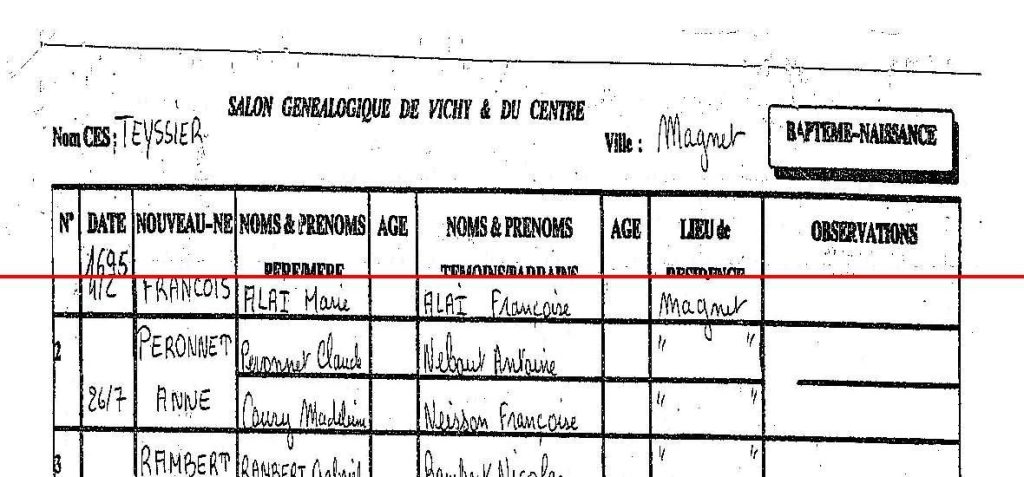 SALON GENEALOGIQUE DE VICHY & DU CENTRE
Nom CES : TEYSSIER
Ville : Magnet
BAPTEME-NAISSANCE
N° DATE NOUVEAU-NE NOMS & PRENOMS AGE NOMS & PRENOMS AGE LIEU de OBSERVATIONS
1695 PERE/MERE TEMOINS/PARRAINS RESIDENCE
4/2 FRANCOIS ALAI Marie ALAI Françoise Magnet
2 PERONNET Peronnet Claude Nebout Antoine " "
26/7 ANNE Coury Madeleine Neisson Francoise " "
3 RAMBERT RANBERT Nicolas " "